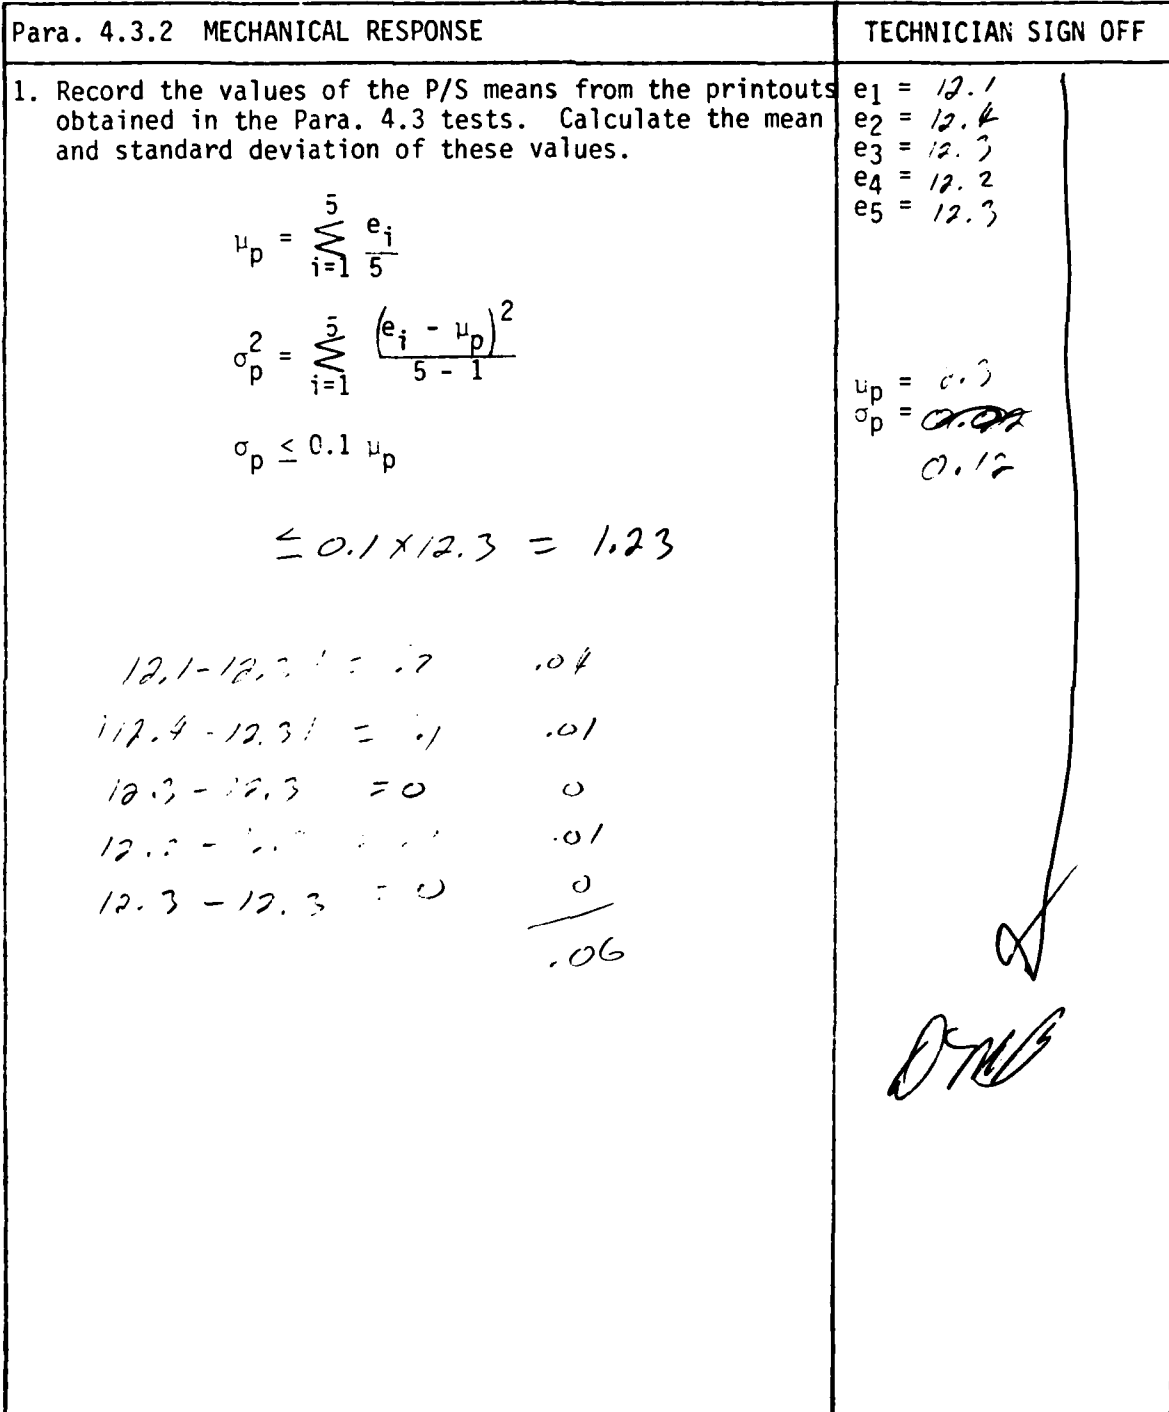 Para. 4.3.2 MECHANICAL RESPONSE
TECHNICIAN SIGN OFF
1. Record the values of the P/S means from the printouts
obtained in the Para. 4.3 tests. Calculate the mean
and standard deviation of these values.
e1 = 12.1
e2 = 12.4
e3 = 12.3
e4 = 12.2
e5 = 12.3
μp = 5 Σ i=1 ei/5
σp² = 5 Σ i=1 (ei - μp)²/5 - 1
σp ≤ 0.1 μp
μp = 0.3
σp =
0.12
≤ 0.1 x 12.3 = 1.23
12.1 - 12. = .2 .04
12.4 - 12.3 = .1 .01
12.3 - 12.3 = 0 0
12. - .01
12.3 - 12.3 = 0 0
.06
DMB